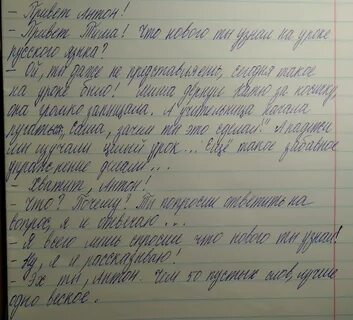 - Привет Антон!
- Привет Тима! Что нового ты узнал на уроке
русского языка?
- Ой, ты даже не представляешь, сегодня такое
на уроке было! Миша дёрнул Катю за косичку
она громко запищала. А учительница начала
ругаться, Саша, зачем ты это сделал!! А падежи
мы изучали целый урок... Ещё такое забавное
упражнение делали...
- Хватит, Антон!
- Что? Почему? Ты попросил ответить на
вопрос, я и отвечаю...
- Я всего лишь спросил что нового ты узнал!
- Ну, я и рассказываю!
- Эх ты, Антон. Чем 50 пустых слов, лучше
одно веское.